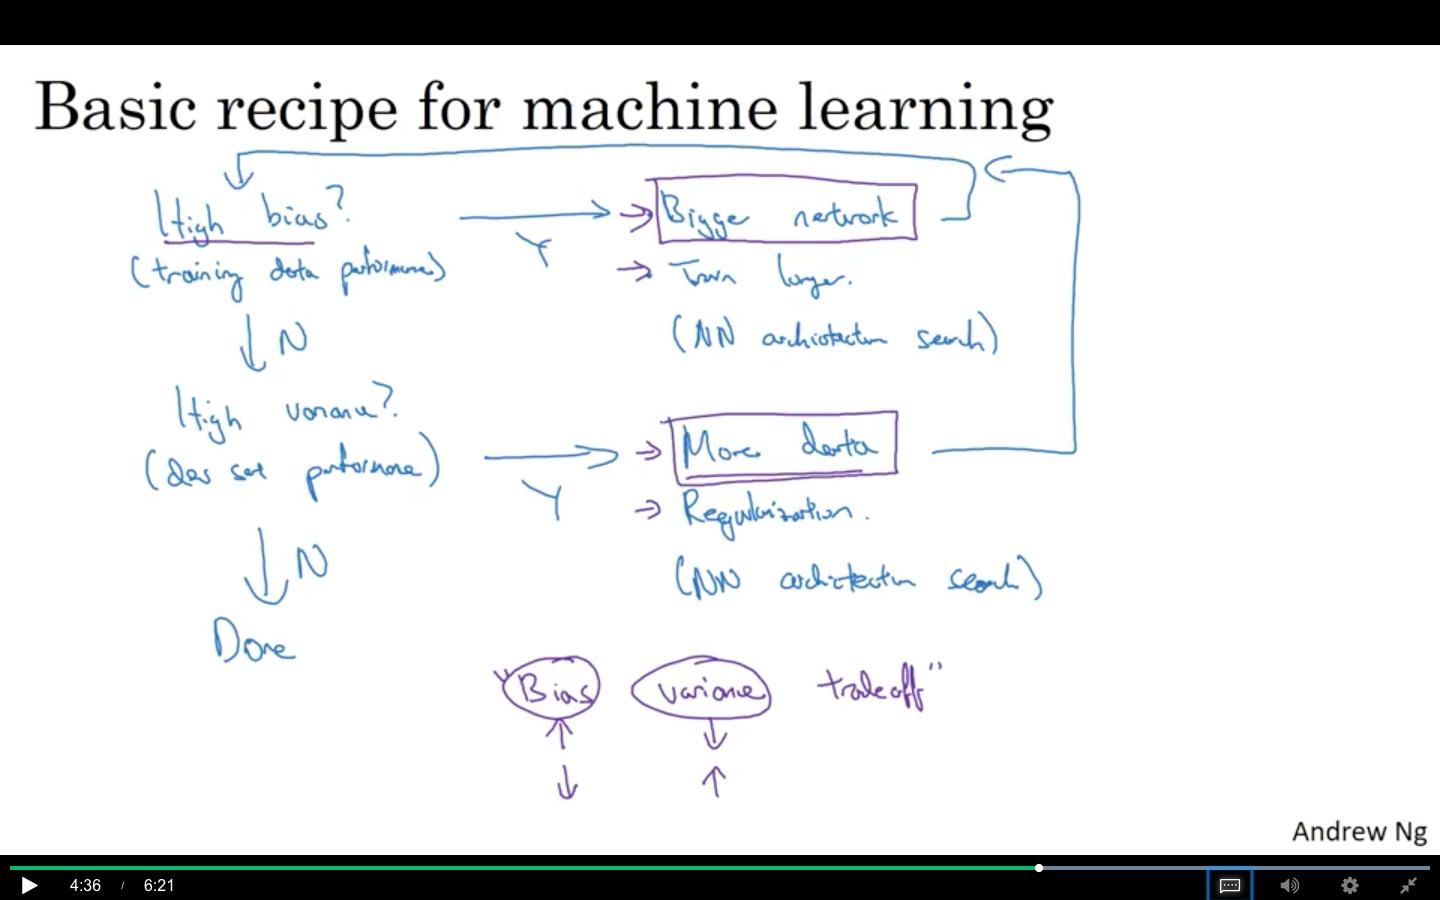 Basic recipe for machine learning
High bias? Y → Bigger network
(training data performance) → Train longer.
N (NN architecture search)
High variance?
(dev set performance) Y → More data
→ Regularization.
N (NN architecture search)
Done
"Bias variance tradeoff"
Andrew Ng
4:36 / 6:21